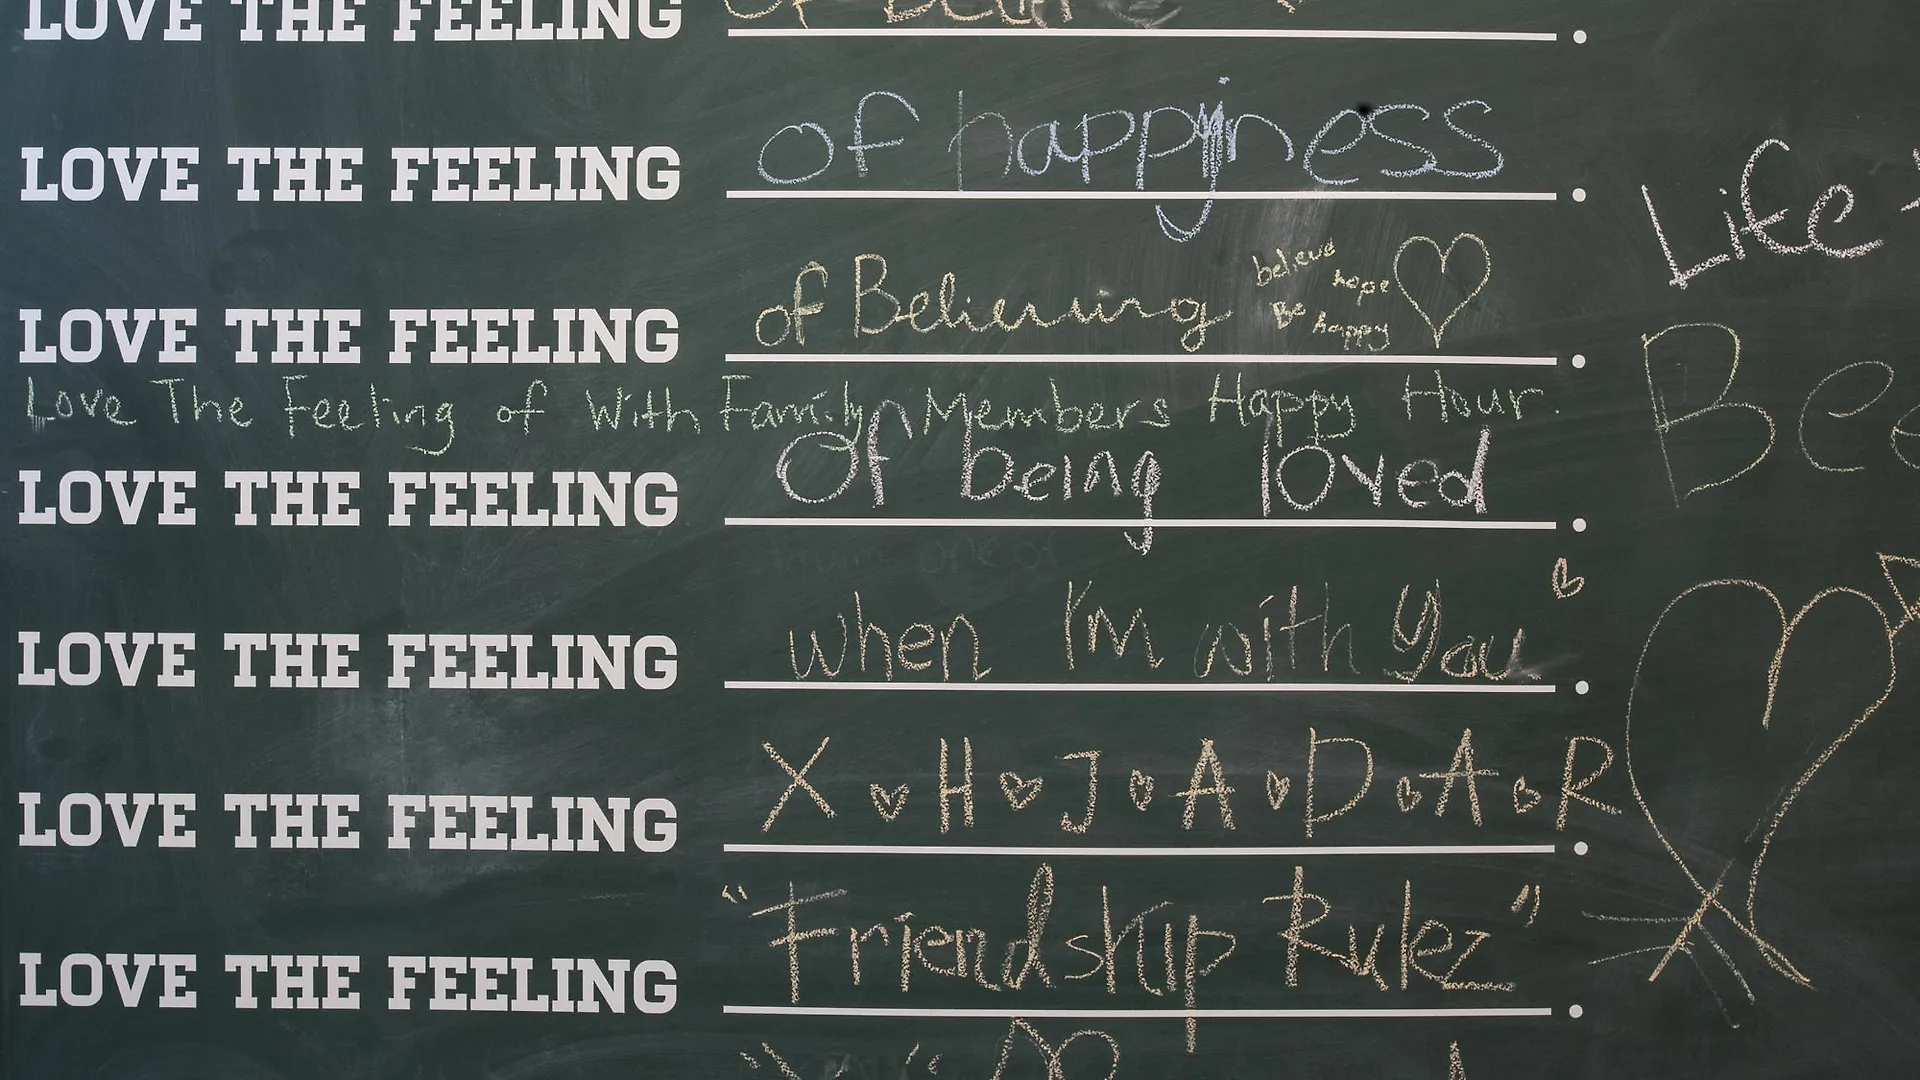 LOVE THE FEELING
LOVE THE FEELING of happiness
Life
LOVE THE FEELING of Believing
believe
hope
Be
happy
Love The Feeling of With Family Members Happy Hour.
LOVE THE FEELING Of being loved
LOVE THE FEELING when I'm with You
LOVE THE FEELING X H J A D A R
LOVE THE FEELING "Friendship Rulez"